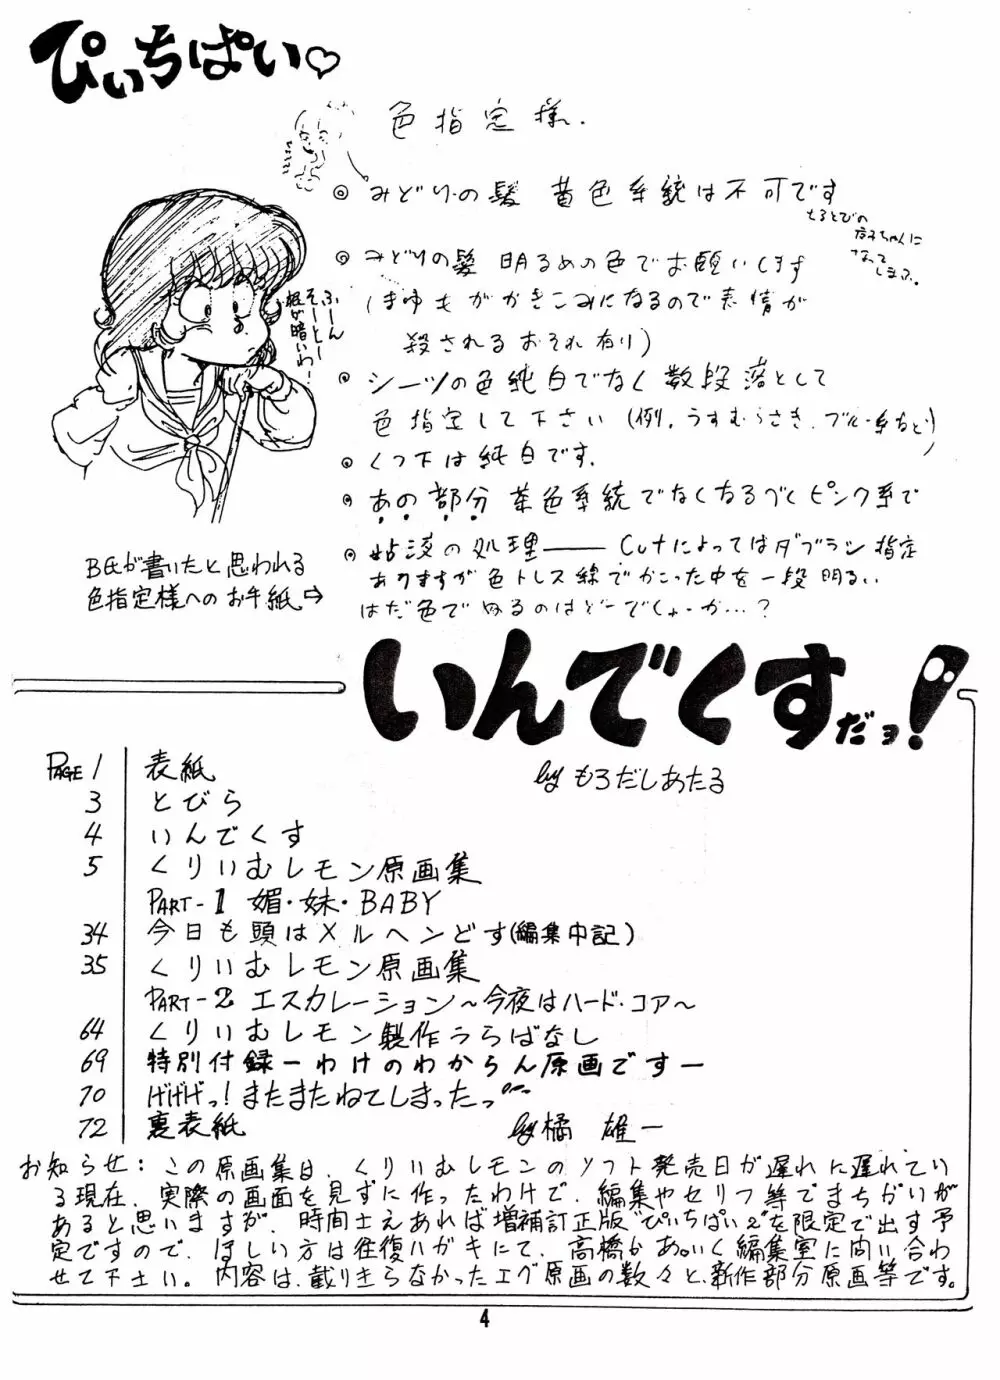 ぴいちぱい♡
色指定様.
◎ みどりの髪 黄色系統は不可です
なって
しまふ。
◎ みどりの髪 明るめの色でお願いします
(まゆもがかきこみになるので表情が
殺されるおそれ有り)
◎ シーツの色純白でなく数段落として
色指定して下さい (例. うすむらさき. ブルー系など)
◎ くつ下は純白です.
◎ あの部分 茶色系統でなくなるべくピンク系で
◎ 粘液の処理―― Cutによってはダブラシ指定
ありますが色トレス線でかこった中を一段明るい
はだ色でぬるのはどーでしょーか…?
ふーん
そーとー
根が暗いわー
B氏が書いたと思われる
色指定様へのお手紙⇨
いんでくすだヨ!
by もろだしあたる
PAGE 1 表紙
3 とびら
4 いんでくす
5 くりいむレモン原画集
PART-1 媚・妹・BABY
34 今日も頭はメルヘンどす(編集中記)
35 くりいむレモン原画集
PART-2 エスカレーション～今夜はハード・コア～
64 くりいむレモン製作うらばなし
69 特別付録ーわけのわからん原画ですー
70 げげげっ!またまたねてしまったっ
72 裏表紙 by 橘 雄一
お知らせ: この原画集は、くりいむレモンのソフト発売日が遅れに遅れてい
る現在、実際の画面を見ずに作ったわけで、編集やセリフ等でまちがいが
あると思いますが、時間さえあれば増補訂正版"ぴいちぱい2"を限定で出す予
定ですので、ほしい方は往復ハガキにて、高橋かあいく編集室に問い合わ
せて下さい。内容は、載りきらなかったエグ原画の数々と、新作部分原画等です。
4